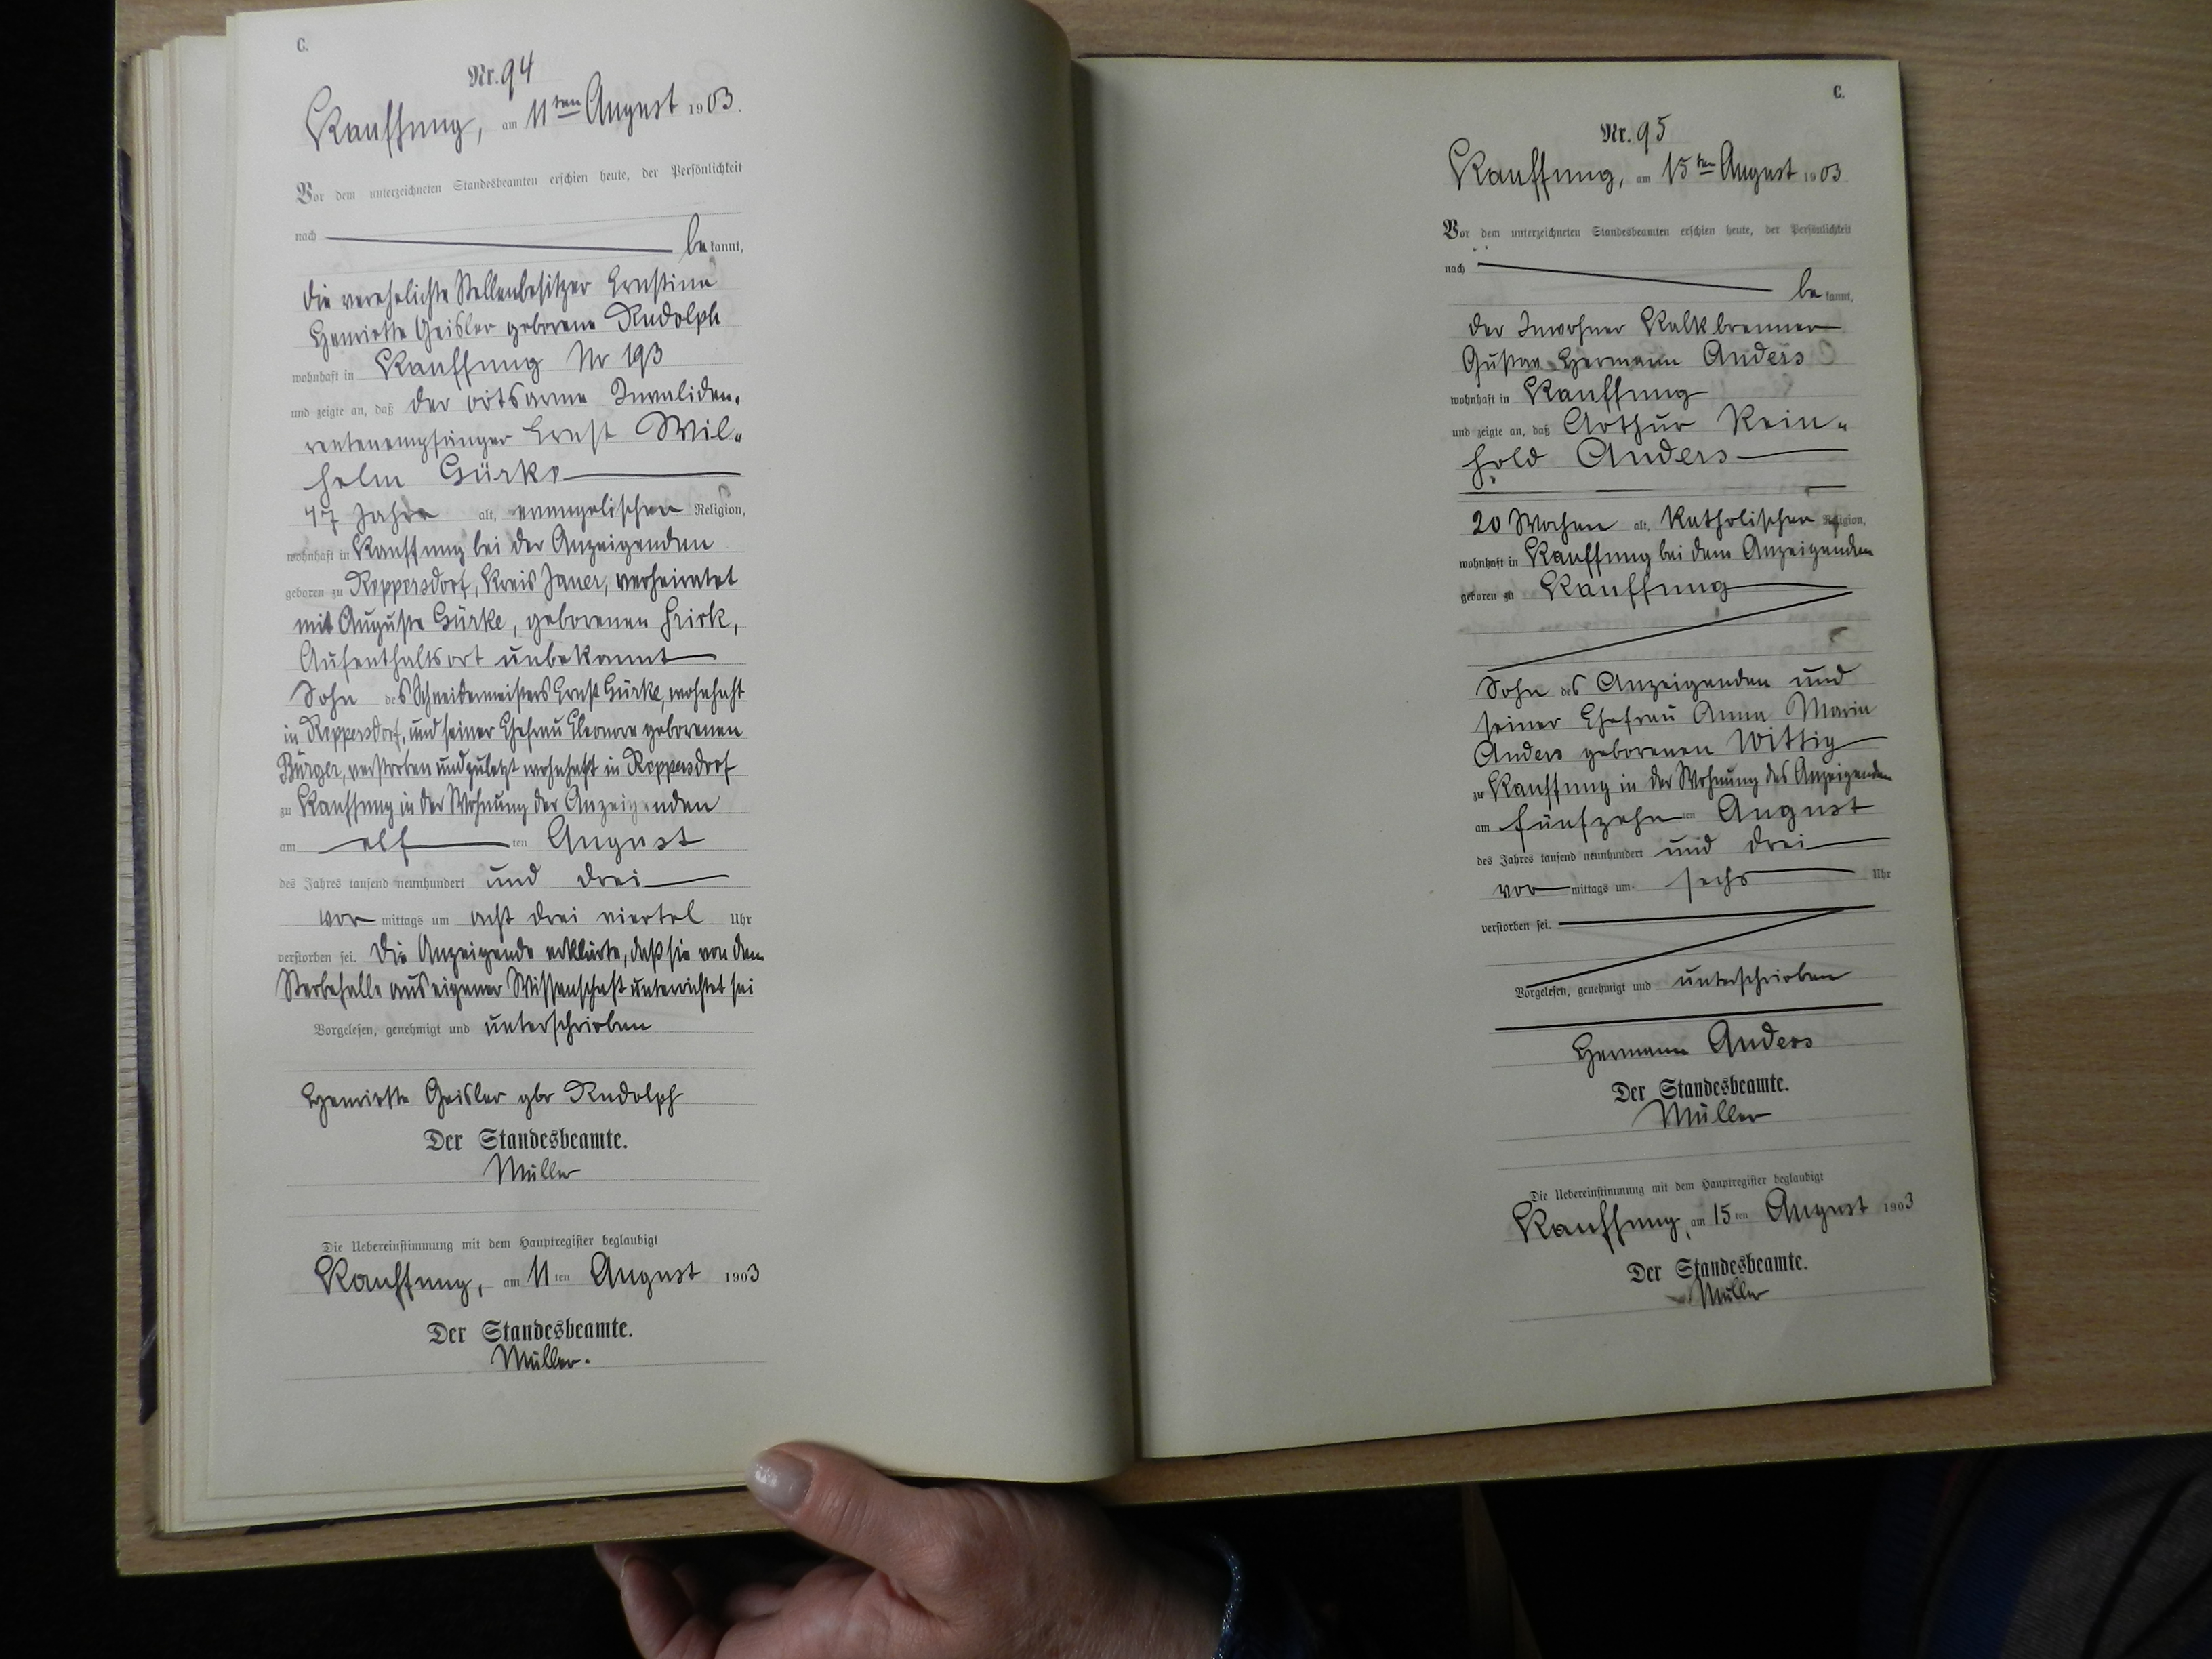 C.
Nr. 94
Kauffung, am 11ten August 1903.
Vor dem unterzeichneten Standesbeamten erschien heute, der Persönlichkeit
nach bekannt,
die verehelichte Stellenbesitzer Ernstine
Henriette Geisler geborene Rudolph
wohnhaft in Kauffung Nr 193
und zeigte an, daß der ortsarme Invaliden-
rentenempfänger Ernst Wil-
helm Gürke
47 Jahre alt, evangelischer Religion,
wohnhaft in Kauffung bei der Anzeigenden
geboren zu Poppersdorf, Kreis Jauer, verheiratet
mit Auguste Gürke, geborenen
Aufenthaltsort unbekannt
Sohn des Schneidermeisters Ernst Gürke, wohnhaft
in Poppersdorf, und seiner Ehefrau Eleonore geborenen
Bürger, verstorben und zuletzt wohnhaft in Poppersdorf
zu Kauffung in der Wohnung der Anzeigenden
am elften August
des Jahres tausend neunhundert und drei
vormittags um acht drei viertel Uhr
verstorben sei. Die Anzeigende erklärte, daß sie von dem
Sterbefalle aus eigener Wissenschaft unterrichtet sei
Vorgelesen, genehmigt und unterschrieben
Henriette Geisler gbr Rudolph
Der Standesbeamte.
Müller
Die Uebereinstimmung mit dem Hauptregister beglaubigt
Kauffung, am 11ten August 1903
Der Standesbeamte.
Müller.
C.
Nr. 95
Kauffung, am 15ten August 1903
Vor dem unterzeichneten Standesbeamten erschien heute, der Persönlichkeit
nach bekannt,
der Inwohner Kalkbrenner
Gustav Hermann Anders
wohnhaft in Kauffung
und zeigte an, daß Arthur Rein-
hold Anders
20 Wochen alt, katholischer Religion,
wohnhaft in Kauffung bei dem Anzeigenden
geboren zu Kauffung
Sohn des Anzeigenden und
seiner Ehefrau Anna Maria
Anders geborenen Wittig
zu Kauffung in der Wohnung des Anzeigenden
am fünfzehnten August
des Jahres tausend neunhundert und drei
vormittags um sechs Uhr
verstorben sei.
Vorgelesen, genehmigt und unterschrieben
Hermann Anders
Der Standesbeamte.
Müller
Die Uebereinstimmung mit dem Hauptregister beglaubigt
Kauffung, am 15ten August 1903
Der Standesbeamte.
Müller